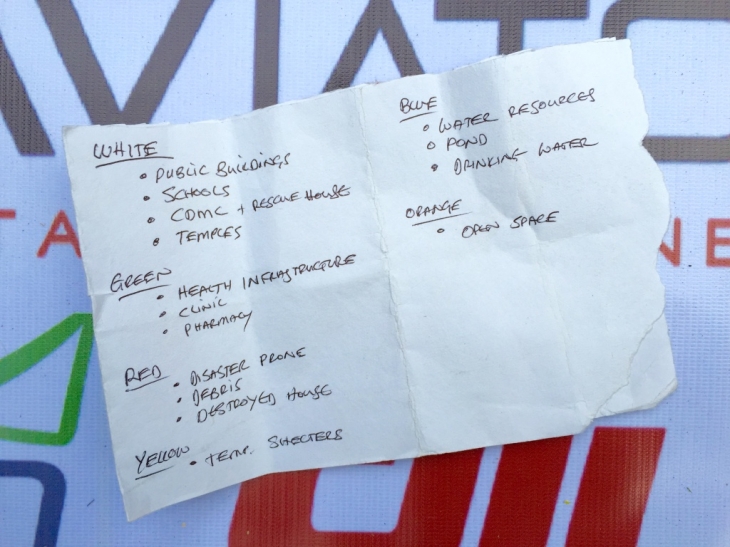 AVIATO
TA
NE
WHITE
• PUBLIC BUILDINGS
• SCHOOLS
• CDMC + RESCUE HOUSE
• TEMPLES
GREEN
• HEALTH INFRASTRUCTURE
• CLINIC
• PHARMACY
RED
• DISASTER PRONE
• DEBRIS
• DESTROYED HOUSE
YELLOW
• TEMP. SHELTERS
BLUE
• WATER RESOURCES
• POND
• DRINKING WATER
ORANGE
• OPEN SPACE